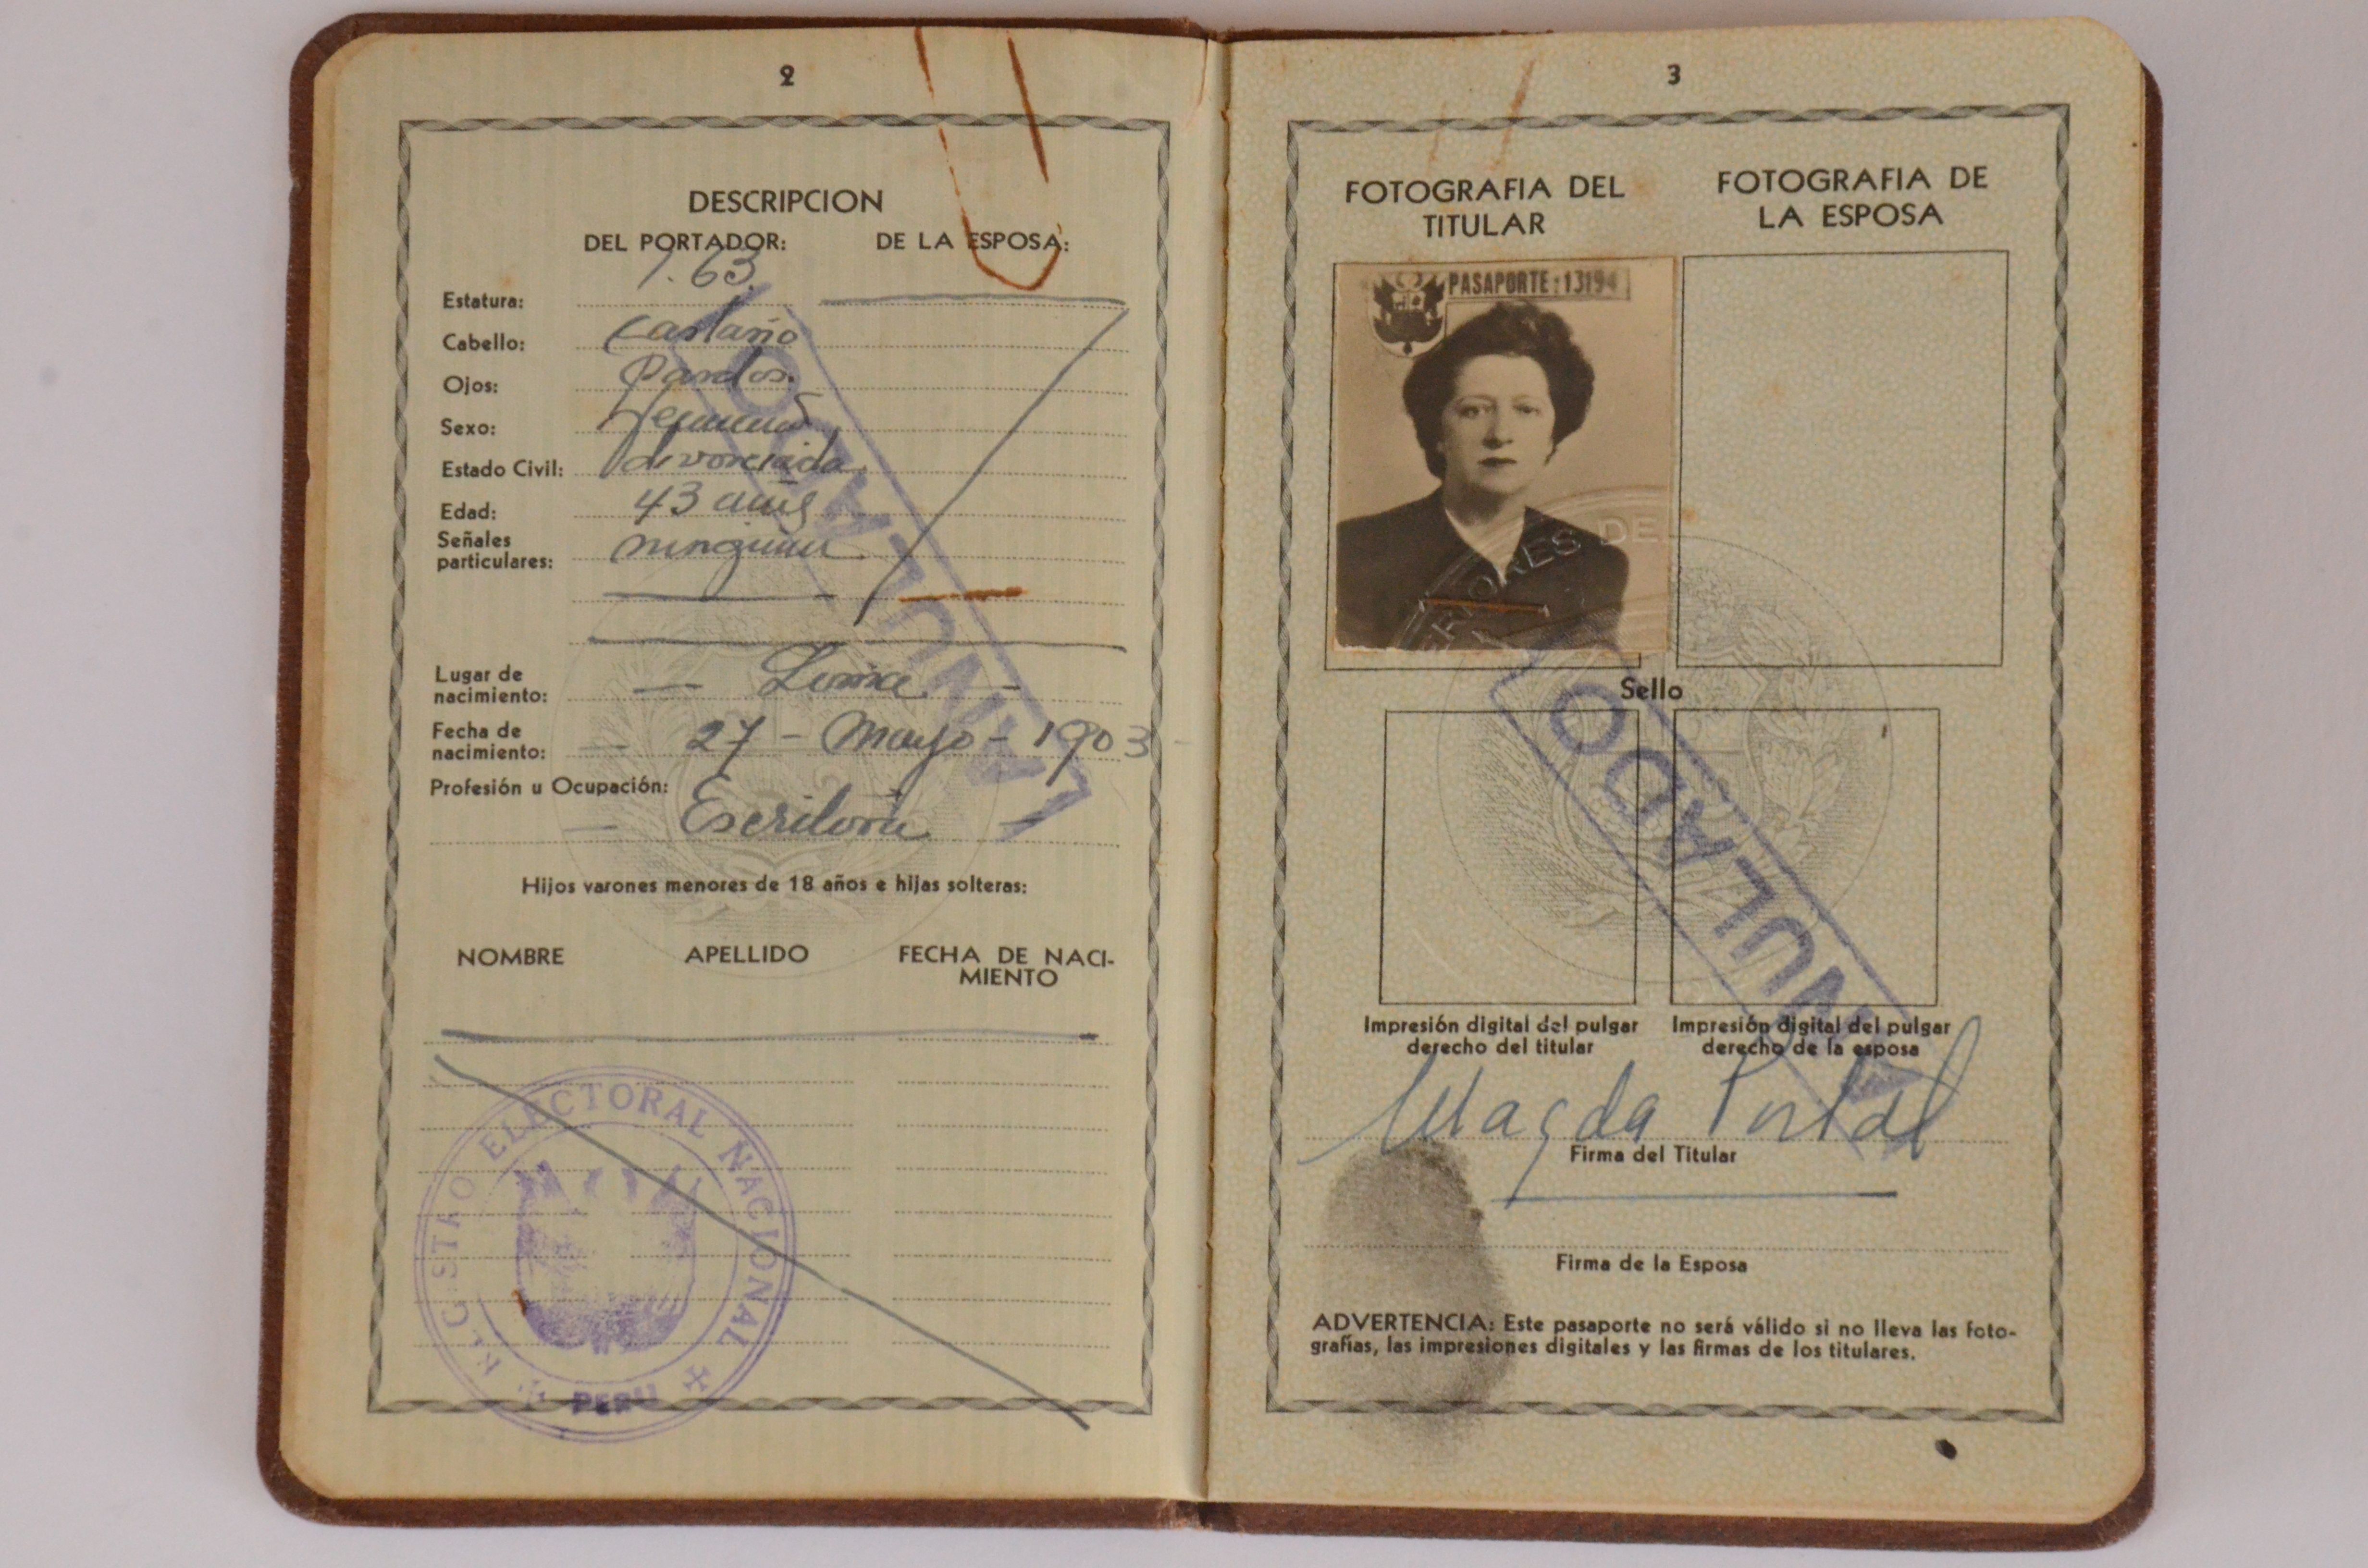 2
DESCRIPCION
DEL PORTADOR: DE LA ESPOSA:
Estatura: 1.63.
Cabello: Castaño
Ojos: Pardos.
Sexo: Femenino
Estado Civil: divorciada.
Edad: 43 años
Señales
particulares: ninguna
Lugar de
nacimiento: — Lima —
Fecha de
nacimiento: — 27 - Mayo - 1903 -
Profesión u Ocupación:
— Escritora —
ANULADO
Hijos varones menores de 18 años e hijas solteras:
NOMBRE APELLIDO FECHA DE NACI-
MIENTO
REGISTRO ELECTORAL NACIONAL
PERU
3
FOTOGRAFIA DEL
TITULAR
FOTOGRAFIA DE
LA ESPOSA
PASAPORTE:13194
RIORES DE
Sello
ANULADO
Impresión digital del pulgar
derecho del titular
Impresión digital del pulgar
derecho de la esposa
Magda Portal
Firma del Titular
Firma de la Esposa
ADVERTENCIA: Este pasaporte no será válido si no lleva las foto-
grafías, las impresiones digitales y las firmas de los titulares.